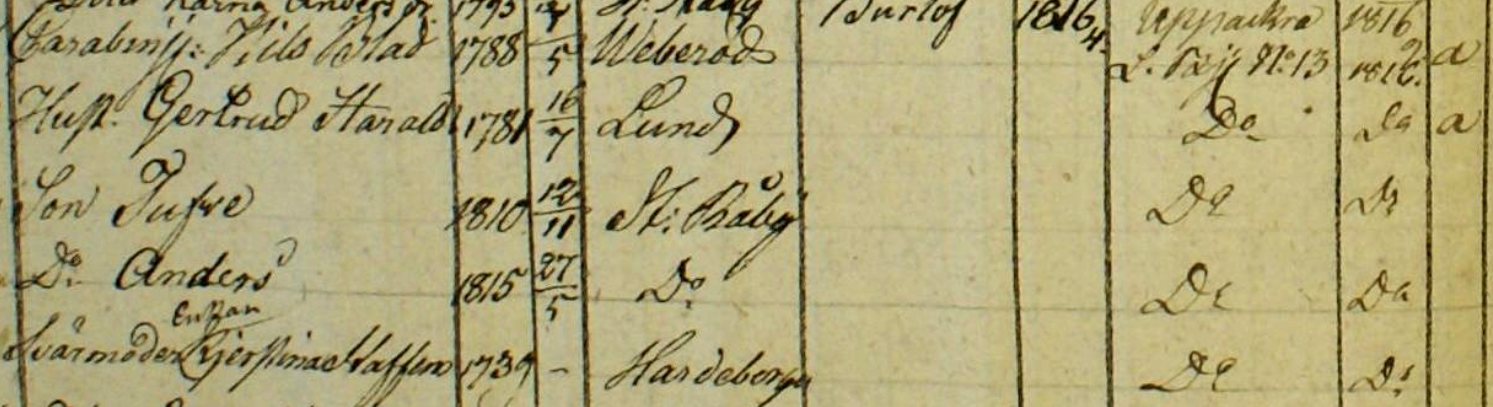 Karna Anders dr. 1793 St. Råby Burlöf 1816 Uppackra 1816
Carabinij: Nils Blad 1788 /5 Weberöd 4. L. Råby No 13 1816. a
Hust. Gertrud Harald 1781 16/7 Lund Do Do a
Son Tufve 1810 12/11 St: Råby Do Do
Do. Anders 1815 27/5 Do. Do Do
Enkan
Svärmoder Kjerstina Staffen 1739 - Hardeberga Do Do